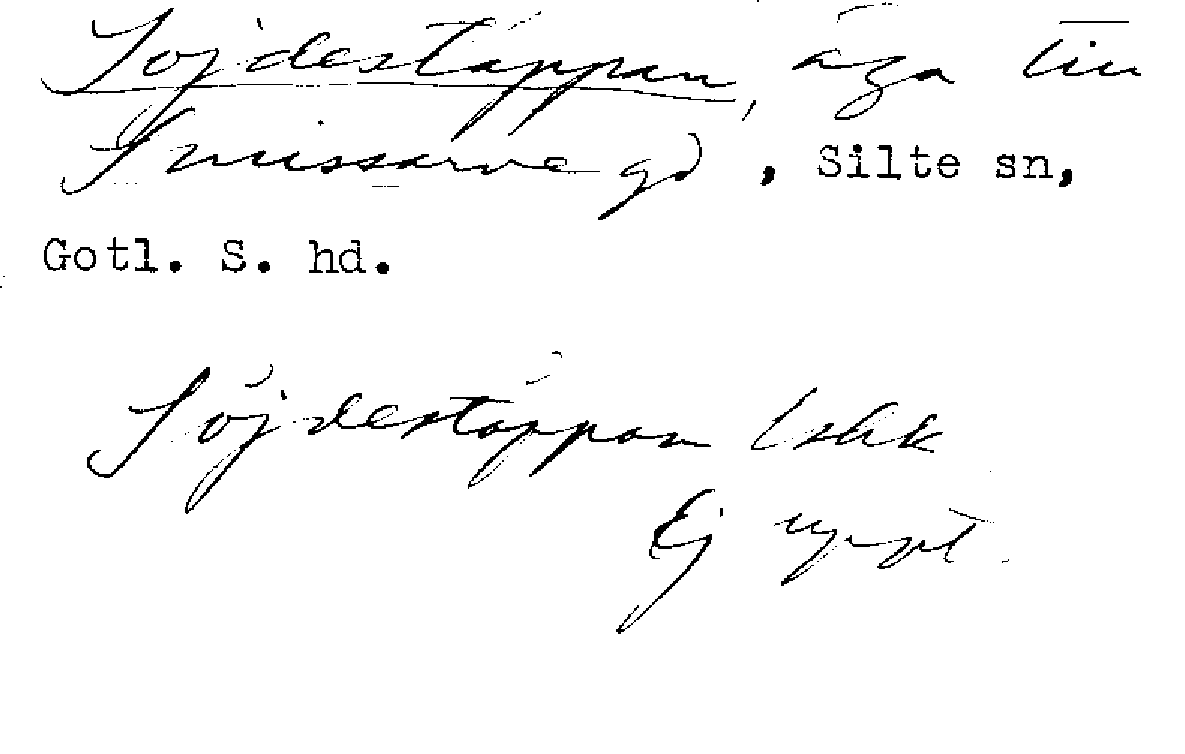 Söjdestäppan, äga till
Snissarve gd, Silte sn,
Gotl. S. hd.
Söjdestäppan Lshk
Ej uppt.